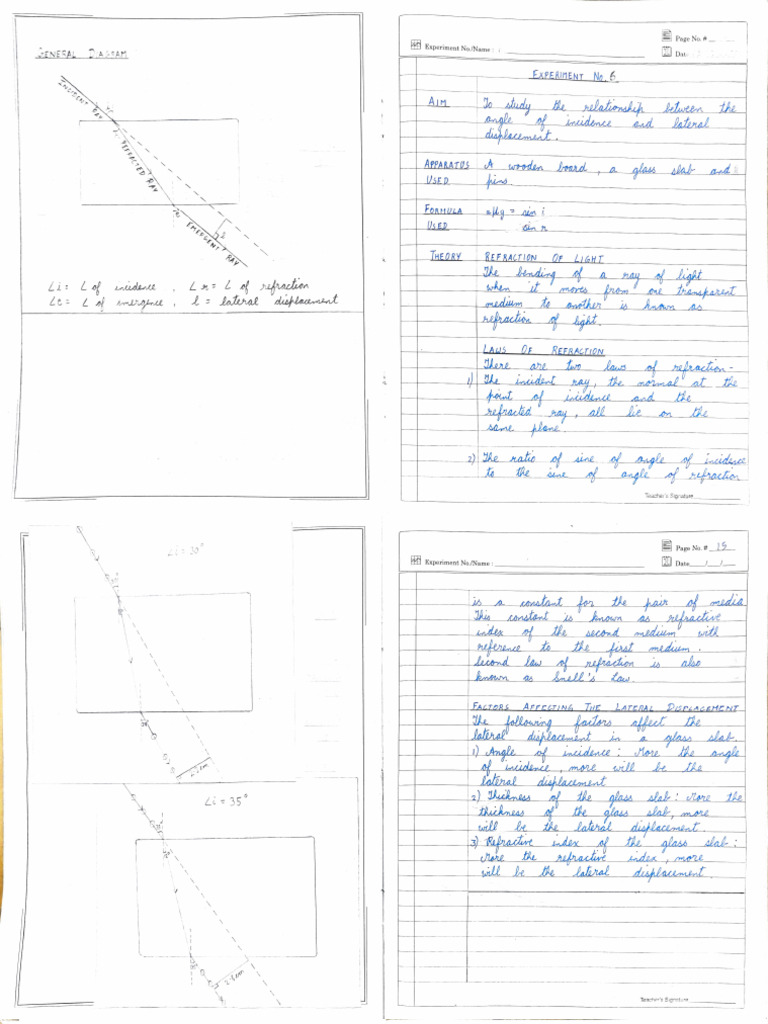 GENERAL DIAGRAM
INCIDENT RAY
REFRACTED RAY
EMERGENT RAY
l
∠i = ∠ of incidence , ∠r = ∠ of refraction
∠e = ∠ of emergence , l = lateral displacement
Experiment No./Name :
Page No. #
Date
EXPERIMENT No. 6
AIM To study the relationship between the
angle of incidence and lateral
displacement.
APPARATUS A wooden board , a glass slab and
USED pins.
FORMULA = sin i
USED sin r
THEORY REFRACTION OF LIGHT
The bending of a ray of light
when it moves from one transparent
medium to another is known as
refraction of light.
LAWS OF REFRACTION
There are two laws of refraction -
1) The incident ray, the normal at the
point of incidence and the
refracted ray, all lie on the
same plane.
2) The ratio of sine of angle of incidence
to the sine of angle of refraction
Teacher's Signature
∠i = 30°
∠i = 35°
2.8cm
Experiment No./Name :
Page No. # 15
Date / /
is a constant for the pair of media
This constant is known as refractive
index of the second medium with
reference to the first medium.
Second law of refraction is also
known as Snell's Law.
FACTORS AFFECTING THE LATERAL DISPLACEMENT
The following factors affect the
lateral displacement in a glass slab
1) Angle of incidence : More the angle
of incidence, more will be the
lateral displacement
2) Thickness of the glass slab : More the
thickness of the glass slab, more
will be the lateral displacement.
3) Refractive index of the glass slab :
More the refractive index, more
will be the lateral displacement.
Teacher's Signature